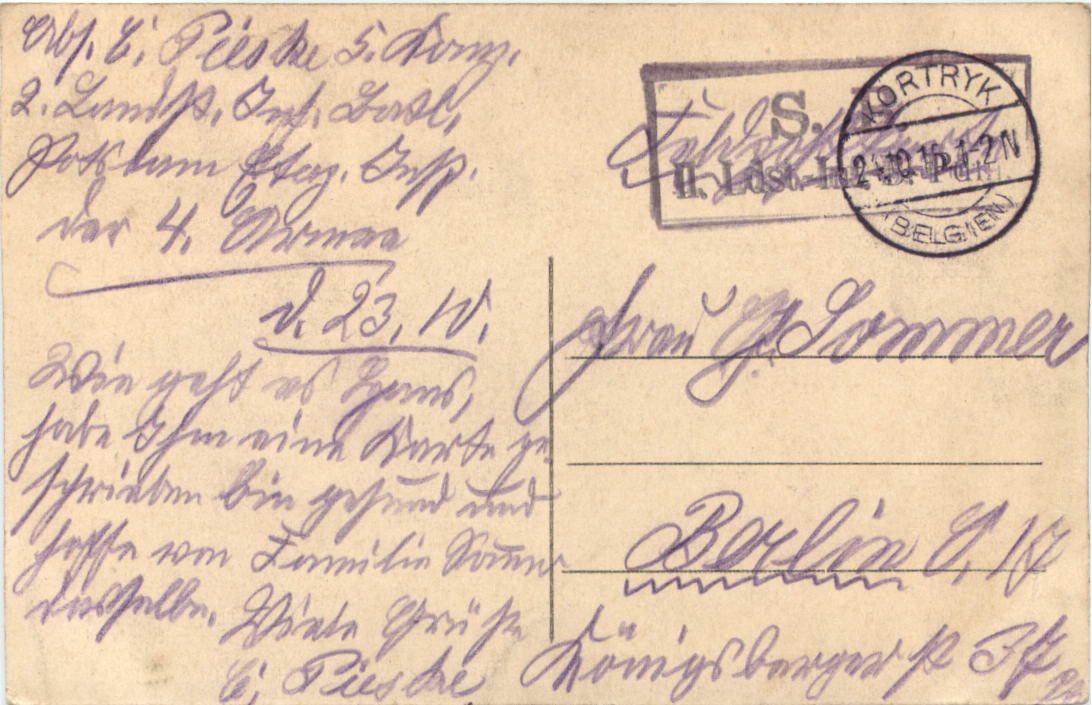 Abs. E. Pieske 5. Komp.
2. Landst. Inf. Batl.
Potsdam Etap. Insp.
der 4. Armee
d. 23. 10.
Wie geht es Hans,
habe Ihm eine Karte ge
schrieben bin gesund und
hoffe von Familie Sommer
dasselbe. Viele Grüße
E. Pieske
S. B.
II. Ldst.-Inf.
Feldpostkarte
KORTRYK
10.15 1-2N
(BELGIEN)
Frau G. Sommer
Berlin O. 17
Königsberger st